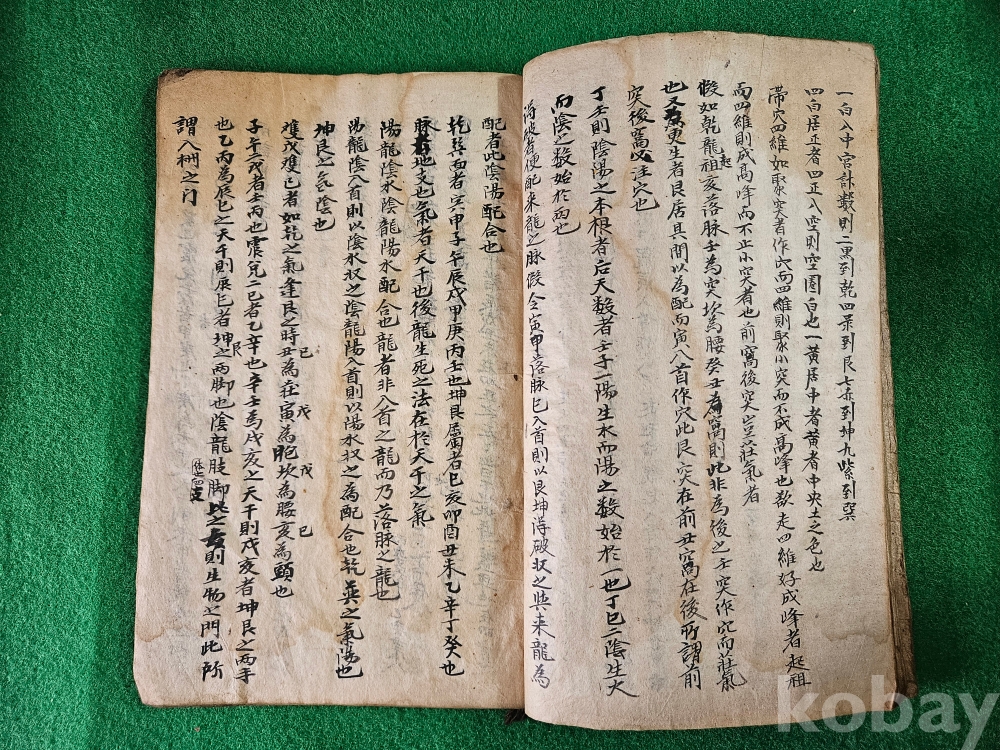 一白入中宮計數則二黑到乾四彔到艮七赤到坤九紫到巽
四白居正者四正入空則空圓白也一黃居中者黃者中央土之色也
帶穴四維如聚突者作穴而四維則聚小突而不成高峰也欲走四維好成峰者起祖
而四維則成高峰而不止小突者也前窩後突豈莊氣者
假如乾龍祖起亥落脉壬為突坎為腰癸丑為窩則此非為後之壬突作穴而莊氣
也又為更生者艮居其間以為配而寅入首作穴此艮突在前丑窩在後所謂前
突後窩必注穴也
丁壬則陰陽之本根者后天數者壬子一陽生水而陽之數始於一也丁巳二陰生火
而陰之數始於而也
得破者便配來龍之脉假令寅甲落脉巳入首則以艮坤得破収之與來龍為
配者此陰陽配合也
乾巽而者寅甲子午辰戌甲庚丙壬也坤艮屬者巳亥卯酉丑未乙辛丁癸也
脉者地支也氣者天干也後龍生死之法在於天干之氣
陽龍陰水陰龍陽水配合也龍者非入首之龍而乃落脉之龍也
陽龍陰入首則以陰水収之陰龍陽入首則以陽水収之為配合也乾巽之氣陽也
坤艮之氣陰也
雙戊雙巳者如乾之氣逢艮之時丑為巳在寅為戊胞坎為戊腰亥為巳頭也
子午六戊者壬丙也震兌二巳者乙辛也辛壬為戌亥之天干則戌亥者坤艮之兩手
也乙丙為辰巳之天干則辰巳者坤艮之兩脚也陰龍肢脚此之玄則生物之門此所
謂八洲之门
kobay